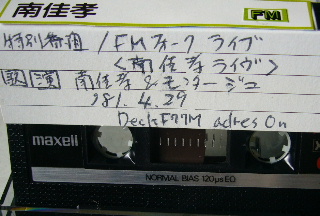 南佳孝 FM
特別番組/FMフォーク ライブ
<南佳孝ライヴ>
歌 演 南佳孝&モンタージュ
'81.4.29
Deck F77M adres On
maxell
NORMAL BIAS 120μs EQ